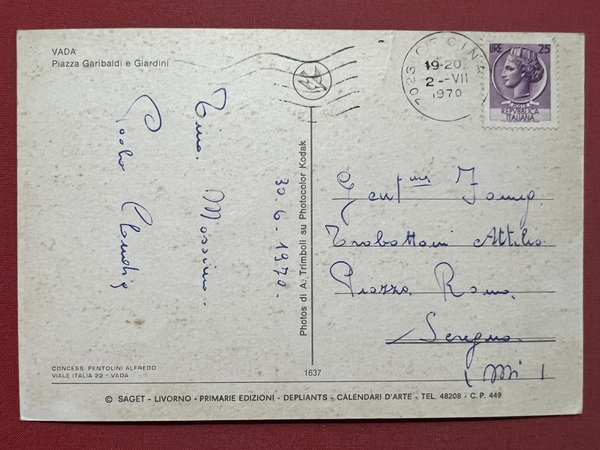 VADA
Piazza Garibaldi e Giardini
Tina. Massimo.
Paolo Claudio
30.6.1970.
Photos di A. Trimboli su Photocolor Kodak
CECINA
19-20
2--VII
1970
LIRE 25
POSTE
REPVBBLICA
ITALIANA
Gent.ma Famig.
Trabattoni Attilio
Piazza Roma
Seregno
(Mi)
CONCESS. PENTOLINI ALFREDO
VIALE ITALIA 22 - VADA
1637
© SAGET - LIVORNO - PRIMARIE EDIZIONI - DEPLIANTS - CALENDARI D'ARTE - TEL. 48208 - C.P. 449